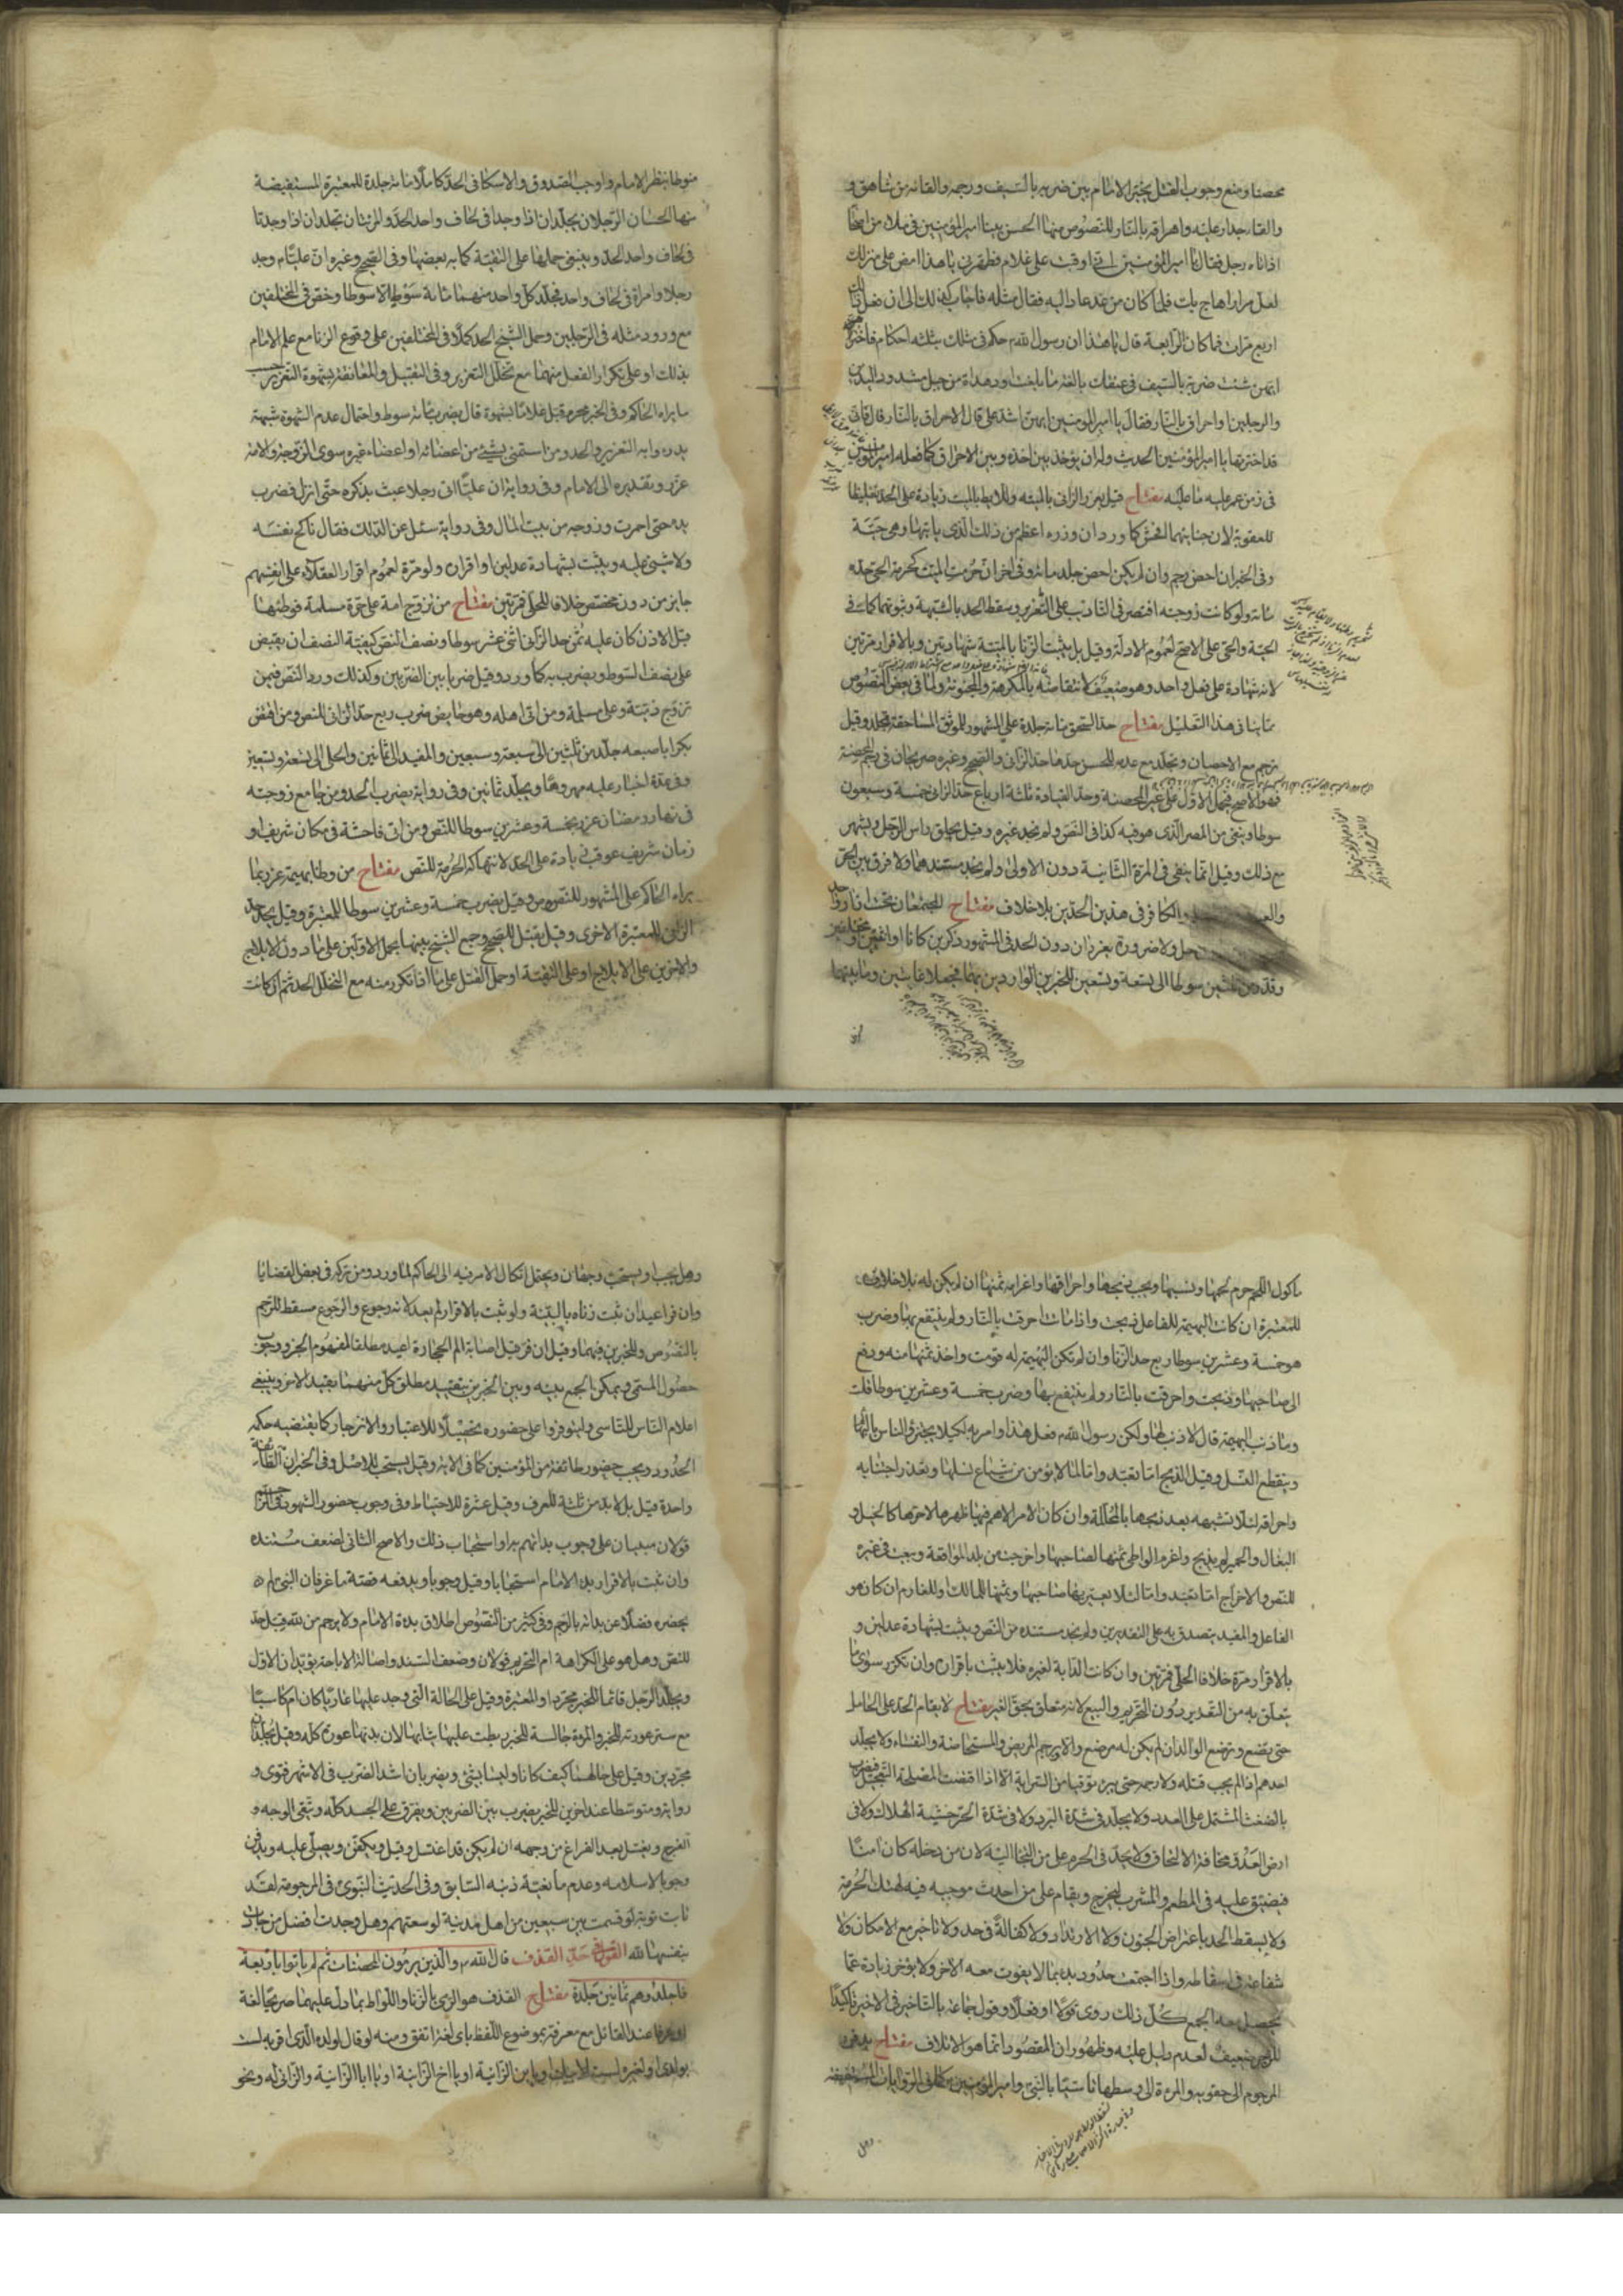 محصنا ومنع وجوب القتل يخير الامام بين ضربه بالسيف ورجمه والقائه من شاهق و
والقاء جدار عليه واحراقه بالنار للنصوص منها الحسن بينا امير المؤمنين في ملاء من اصحابه
اذ اتاه رجل فقال يا امير المؤمنين اني اوقبت على غلام فطهرني يا هذا امض على منزلك
لعل مرارا هاج بك فلما كان من غد عاد اليه فقال مثله فاجاب كذلك الى ان فعل ذلك
اربع مرات فلما كان الرابعة قال يا هذا ان رسول الله حكم في مثلك بثلثة احكام فاختر
ايهن شئت ضربة بالسيف في عنقك بالغة ما بلغت او دهداة من جبل مشدود اليدين
والرجلين او احراق بالنار فقال يا امير المؤمنين ايهن اشد علي قال الاحراق بالنار قال فاني
قد اخترتها يا امير المؤمنين الحديث ولمن ان يؤخذ بين احده وبين الاحراق كما فعله امير المؤمنين
في زمن عمر عليه ما عليه مفتاح قيل يعزر الزاني بالميتة واللايط بالميت زيادة على الحد تغليظا
للعقوبة لان جنايتهما افحش كما ورد ان وزره اعظم من ذلك الذي ياتيها وهي حية
وفي الخبر ان احصن رجم وان لم يكن احصن جلد مائة وفي اخر ان حرمة الميت كحرمة الحي حده
مائة ولو كانت زوجته اقتصر في التاديب على التعزير وسقط الحد بالشبهة وثبوتهما كما في
الحية والحي على الاصح لعموم الادلة وقيل بل يثبت الزنا بالميتة شهادتين وبالاقرار مرتين
لانه شهادة على فعل واحد وهو ضعيف لانتقاضه بالمكرهة والمجنونة ولما في بعض النصوص
مما ينافي هذا التعليل مفتاح حد السحق مائة جلدة على المشهور للموثق المساحقة تجلد وقيل
ترجم مع الاحصان وتجلد مع عدمه للحسن حدها حد الزاني والصحيح وغيره صريحان في رجم المحصنة
فهو الاصح فيحمل الاول على غير المحصنة وحد القيادة ثلثة ارباع حد الزاني خمسة وسبعون
سوطا وينفى من المصر الذي هو فيه كذا في النص ولم نجد غيره وقيل يحلق راس الرجل ويشهر
مع ذلك وقيل انما ينفى في المرة الثانية دون الاولى ولم نجد مستندهما ولا فرق بين الحر
والعبد والكافر في هذين الحدين بلا خلاف مفتاح المجتمعان تحت ازار واحد
ولا ضرورة يعزران دون الحد في المشهور ذكرين كانا او انثيين او مختلفين
وقدر من ثلثين سوطا الى تسعة وتسعين للخبرين الواردين بهما فجعلا غايتين وما بينهما
منوطا بنظر الامام واوجب الصدوق والاسكافي الحد كاملا مائة جلدة للمعتبرة المستفيضة
منها الحسان الرجلان يجلدان اذا وجدا في لحاف واحد الحد والمرئتان تجلدان اذا وجدتا
في لحاف واحد الحد وينبغي حملها على التقية كما به بعضها وفي الصحيح وغيره ان عليا م وجد
رجلا وامراة في لحاف واحد فجلد كل واحد منهما مائة سوط الا سوطا وخص في المختلفين
مع ورود مثله في الرجلين وحمل الشيخ الحد كملا في المختلفين على وقوع الزنا مع علم الامام
بذلك او على تكرار الفعل منهما مع تخلل التعزير وفي التقبيل والمعانقة بشهوة التعزير
ما يراه الحاكم وفي الخبر محرم قبل غلاما بشهوة قال يضرب مائة سوط واحتمال عدم الشهوة شبهة
يدرء به التعزير والحد ومن استمنى بشيء من اعضائه او اعضاء غيره سوى الزوجة والامة
عزر وتقديره الى الامام وفي رواية ان عليا اتي رجلا عبث بذكره حتى انزل فضرب
يده حتى احمرت وزوجه من بيت المال وفي رواية سئل عن الدلك فقال ناكح نفسه
ولا شيء عليه ويثبت بشهادة عدلين او اقراره ولو مرة لعموم اقرار العقلاء على انفسهم
جايز من دون مخصص خلافا للحلي فمرتين مفتاح من تزوج امة على حرة مسلمة فوطئها
قبل الاذن كان عليه ثمن حد الزاني اثنى عشر سوطا ونصف للنص كيفية النصف ان يقبض
على نصف السوط ويضرب به كما ورد وقيل ضربا بين الضربين وكذلك ورد النص فيمن
تزوج ذمية على مسلمة ومن اتى اهله وهو حايض يضرب ربع حد الزاني للنص ومن افتض
بكرا باصبعه جلد من ثلثين الى سبعة وسبعين والمفيد الى الثمانين والحلي الى تسعة وتسعين
وفي عدة اخبار عليه مهرها ويجلد ثمانين وفي رواية يضرب الحد ومن جامع زوجته
في نهار رمضان عزر بخمسة وعشرين سوطا للنص ومن اتى فاحشة في مكان شريف او
زمان شريف عوقب زيادة على الحد لانتهاكه الحرمة للنص مفتاح من وطئ بهيمة عزر بما
يراه الحاكم على المشهور للنصوص وقيل يضرب خمسة وعشرين سوطا للمعتبرة وقيل يحد حد
الزاني للمعتبرة الاخرى وقيل يقتل للصحيح وجمع الشيخ بينها بحمل الاولين على ما دون الايلاج
والاخرين على الايلاج او على التقية او حمل القتل على ما اذا تكرر منه مع التخلل الحد ثم ان كانت
ماكول اللحم حرم لحمها ونسلها ويجب ذبحها واحراقها واغرامه ثمنها ان لم يكن له بلا خلاف
للمعتبرة ان كانت البهيمة للفاعل ذبحت واذا ماتت احرقت بالنار ولم ينتفع بها وضرب
هو خمسة وعشرين سوطا ربع حد الزنا وان لم تكن البهيمة له قومت واخذ ثمنها منه ودفع
الى صاحبها وذبحت واحرقت بالنار ولم ينتفع بها وضرب خمسة وعشرين سوطا فقلت
وما ذنب البهيمة قال لا ذنب لها ولكن رسول الله فعل هذا وامر به لكيلا يجترؤ الناس بالبهايم
وينقطع النسل وقيل الذبح اما تعبد واما لما لا يؤمن من شياع نسلها وتعذر اجتنابه
واحراقها لئلا تشبهه بعد ذبحها بالمحللة وان كان الامر الاهم فيها ظهرها لا لحمها كالخيل و
البغال والحمير لم يذبح واغرم الواطي ثمنها لصاحبها واخرجت من بلد المواقعة وبيعت في غيره
للنص والاخراج اما تعبد واما لئلا يعير بها صاحبها وثمنها للمالك او للغارم ان كان هو
الفاعل والمفيد يتصدق به على التقديرين ولم نجد مستنده من النص ويثبت بشهادة عدلين و
بالاقرار مرة خلافا للحلي فمرتين وان كانت الدابة لغيره فلا يثبت باقراره وان تكرر سوى ما
يتعلق به من التعزير دون التحريم والبيع لانه متعلق بحق الغير مفتاح لا يقام الحد على الحامل
حتى تضع وترضع الولد ان لم يكن له مرضع ولا يرجم المريض والمستحاضة والنفساء ولا يجلد
احدهم اذا لم يجب قتله ولا رجمه حتى يبرء توقيا من السراية الا اذا اقتضت المصلحة التعجيل فيضرب
بالضغث المشتمل على العدد ولا يجلد في شدة البرد ولا في شدة الحر خشية الهلاك ولا في
ارض العدو مخافة الالتحاق ولا يحد في الحرم على من التجا اليه لان من دخله كان امنا
فيضيق عليه في المطعم والمشرب ليخرج ويقام على من احدث موجبه فيه لهتك الحرمة
ولا يسقط الحد باعتراض الجنون ولا الارتداد ولا كفالة في حد ولا تاخير مع الامكان ولا
شفاعة في اسقاطه واذا اجتمعت حدود بدء بما لا يفوت معه الاخر ولا يؤخر زيادة عما
يحصل به الجمع كل ذلك روى قولا او فعلا وقول جماعة بالتاخير في الاخير تاكيدا
للزجر ضعيف لعدم دليل عليه وظهور ان المقصود انما هو الاتلاف مفتاح يدفن
المرجوم الى حقويه والمرءة الى وسطها تاسيا بالنبي وامير المؤمنين كما في الروايات المستفيضة
وهل
وهل يجب او يستحب وجهان ويحتمل اتكال الامر فيه الى الحاكم لما ورد ومن تركه في بعض القضايا
وان فرا عيد ان ثبت زناه بالبينة ولو ثبت بالاقرار لم يعد لانه رجوع والرجوع مسقط للرجم
بالنصوص وللخبرين فيهما وقيل ان فر قبل اصابة الم الحجارة اعيد مطلقا لمفهوم الخبر ووجوب
حصول المسمى ويمكن الجمع بينه وبين الخبرين بتقييد مطلق كل منهما بقيد الاخر وينبغي
اعلام الناس للتاسي وليتوفروا على حضوره تحصيلا للاعتبار والانزجار كما يقتضيه حكمة
الحدود ويجب حضور طائفة من المؤمنين كما في الاية وقيل يستحب للاصل وفي الخبر ان الطائفة
واحدة قيل بل لا بد من ثلثة للعرف وقيل عشرة للاحتياط وفي وجوب حضور الشهود
قولان مبنيان على وجوب بدائتهم به او استحباب ذلك والاصح الثاني لضعف مستنده
وان ثبت بالاقرار بدء الامام استحبابا وقيل وجوبا ويدفعه قصة ماعز فان النبي لم
يحضره فضلا عن بدائه بالرجم وفي كثير من النصوص اطلاق بدءة الامام ولا يرجم من لله قبله حد
للنص وهل هو على الكراهة ام التحريم قولان وضعف السند واصالة الاباحة يؤيدان الاول
ويجلد الرجل قائما للخبر مجردا وللمعتبرة وقيل على الحالة التي وجد عليها عاريا كان ام كاسيا
مع ستر عورته للخبر والمرءة جالسة للخبر ربطت عليها ثيابها لان بدنها عورة كله وقيل يجلدان
مجردين وقيل على حالهما كيف كانا وليسا بشيء ويضربان اشد الضرب في الاشهر فتوى و
رواية ومتوسطا عند اخرين للخبر يضرب بين الضربين ويفرق على الجسد كله ويتقى الوجه و
الفرج ويغسل بعد الفراغ من رجمه ان لم يكن قد اغتسل وقيل ويكفن ويصلى عليه ويدفن
وجوبا لاسلامه وعدم مانعية ذنبه السابق وفي الحديث النبوي في المرجومة لقد
تابت توبة لو قسمت بين سبعين من اهل مدينة لوسعتهم وهل وجدت افضل من جادت
بنفسها لله القول في حد القذف قال الله والذين يرمون المحصنات ثم لم ياتوا باربعة
فاجلدوهم ثمانين جلدة مفتاح القذف هو الرمي بالزنا واللواط بما دل عليهما صريحا لغة
او عرفا عند القائل مع معرفته بموضوع اللفظ باي لغة اتفق ومنه لو قال لولده الذي اقر به لست
بولدي او لغيره لست لابيك او يا بن الزانية او يا اخ الزانية او يا ابا الزانية والزاني له ونحو